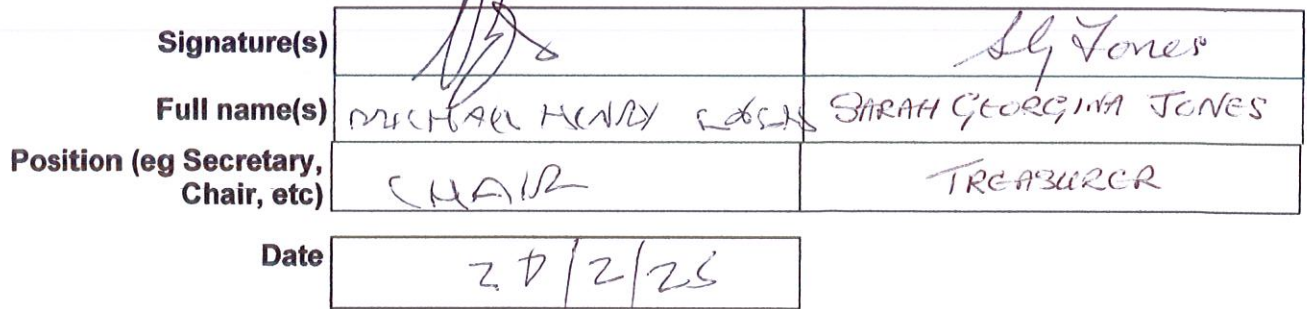 Signature(s) SG Jones
Full name(s) MICHAEL HENRY SARAH GEORGINA JONES
Position (eg Secretary,
Chair, etc) CHAIR TREASURER
Date 20/2/25